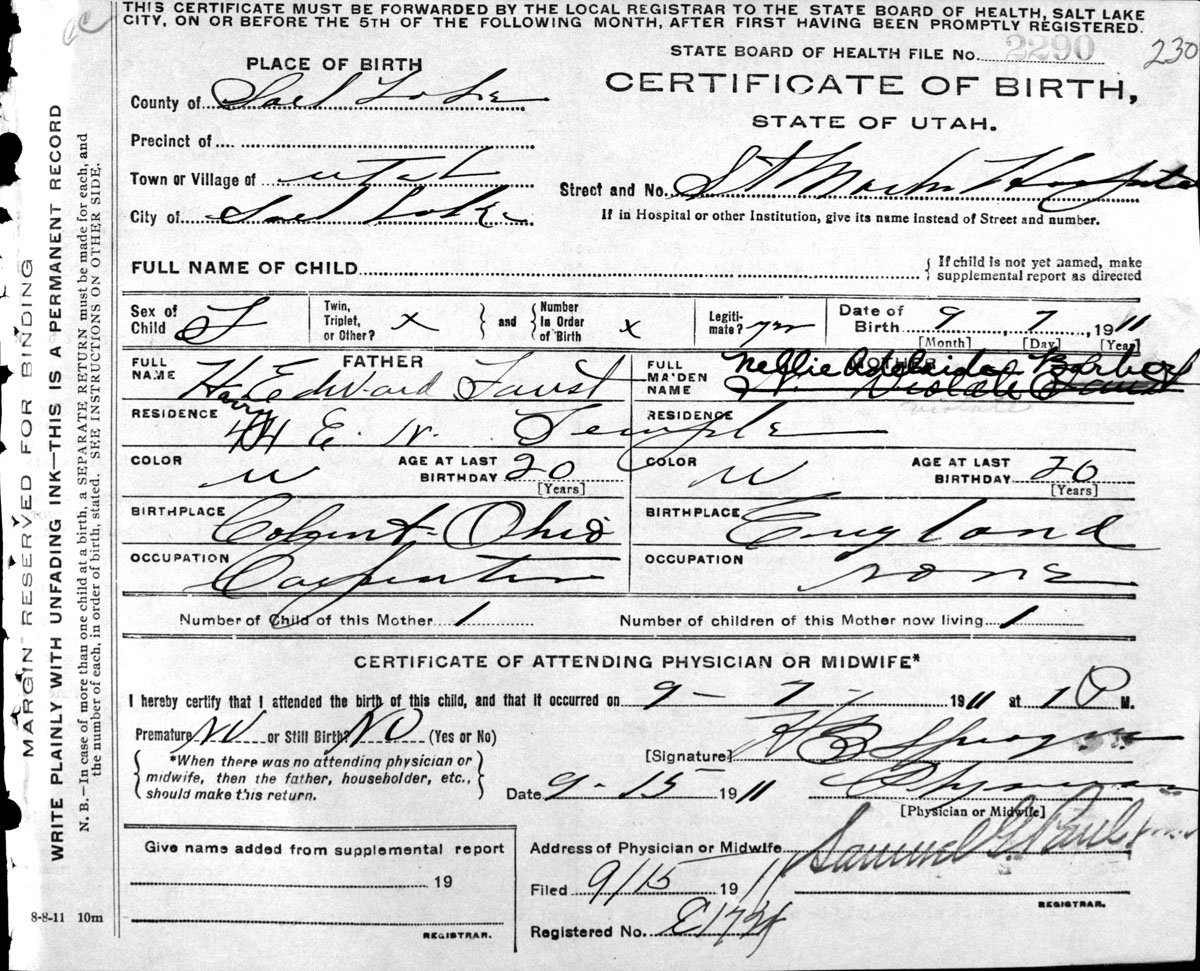 THIS CERTIFICATE MUST BE FORWARDED BY THE LOCAL REGISTRAR TO THE STATE BOARD OF HEALTH, SALT LAKE
CITY, ON OR BEFORE THE 5TH OF THE FOLLOWING MONTH, AFTER FIRST HAVING BEEN PROMPTLY REGISTERED.
STATE BOARD OF HEALTH FILE No. 2290 230
PLACE OF BIRTH
CERTIFICATE OF BIRTH,
STATE OF UTAH.
County of Salt Lake
Precinct of
Town or Village of Utah
Street and No. St Marks Hospital
City of Salt Lake
If in Hospital or other Institution, give its name instead of Street and number.
FULL NAME OF CHILD
If child is not yet named, make
supplemental report as directed
Sex of Child F Twin, Triplet, or Other? x and Number In Order of Birth x Legiti-mate? yes Date of Birth 9, 7, 1911
[Month] [Day] [Year]
FATHER MOTHER
FULL NAME Harry Edward Faust FULL MAIDEN NAME Nellie Adelaide
RESIDENCE 44 E. N. Temple RESIDENCE
COLOR W AGE AT LAST BIRTHDAY 20 [Years] COLOR W AGE AT LAST BIRTHDAY 20 [Years]
BIRTHPLACE Ohio BIRTHPLACE England
OCCUPATION Carpenter OCCUPATION none
Number of Child of this Mother 1 Number of children of this Mother now living 1
CERTIFICATE OF ATTENDING PHYSICIAN OR MIDWIFE*
I hereby certify that I attended the birth of this child, and that it occurred on 9 - 7 - 1911 at 1 P M.
Premature No or Still Birth? NO (Yes or No)
[Signature] H B Sprague
*When there was no attending physician or
midwife, then the father, householder, etc.,
should make this return.
Date 9 - 15 1911 Physician
[Physician or Midwife]
Give name added from supplemental report
19
REGISTRAR.
Address of Physician or Midwife
Samuel G. Paul
Filed 9/15 1911
REGISTRAR.
Registered No.
8-8-11 10m
MARGIN RESERVED FOR BINDING
WRITE PLAINLY WITH UNFADING INK—THIS IS A PERMANENT RECORD
N. B.—In case of more than one child at a birth, a SEPARATE RETURN must be made for each, and
the number of each, in order of birth, stated. SEE INSTRUCTIONS ON OTHER SIDE,